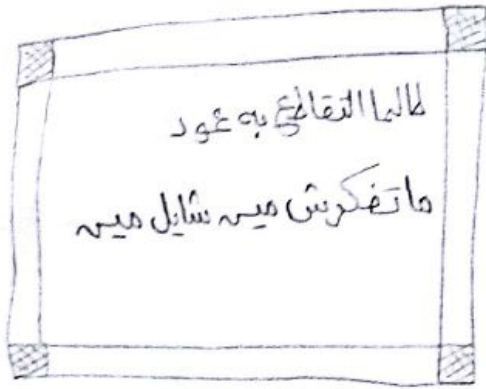 طالما التقاطع به عمود
ما تفكرش مين شايل مين